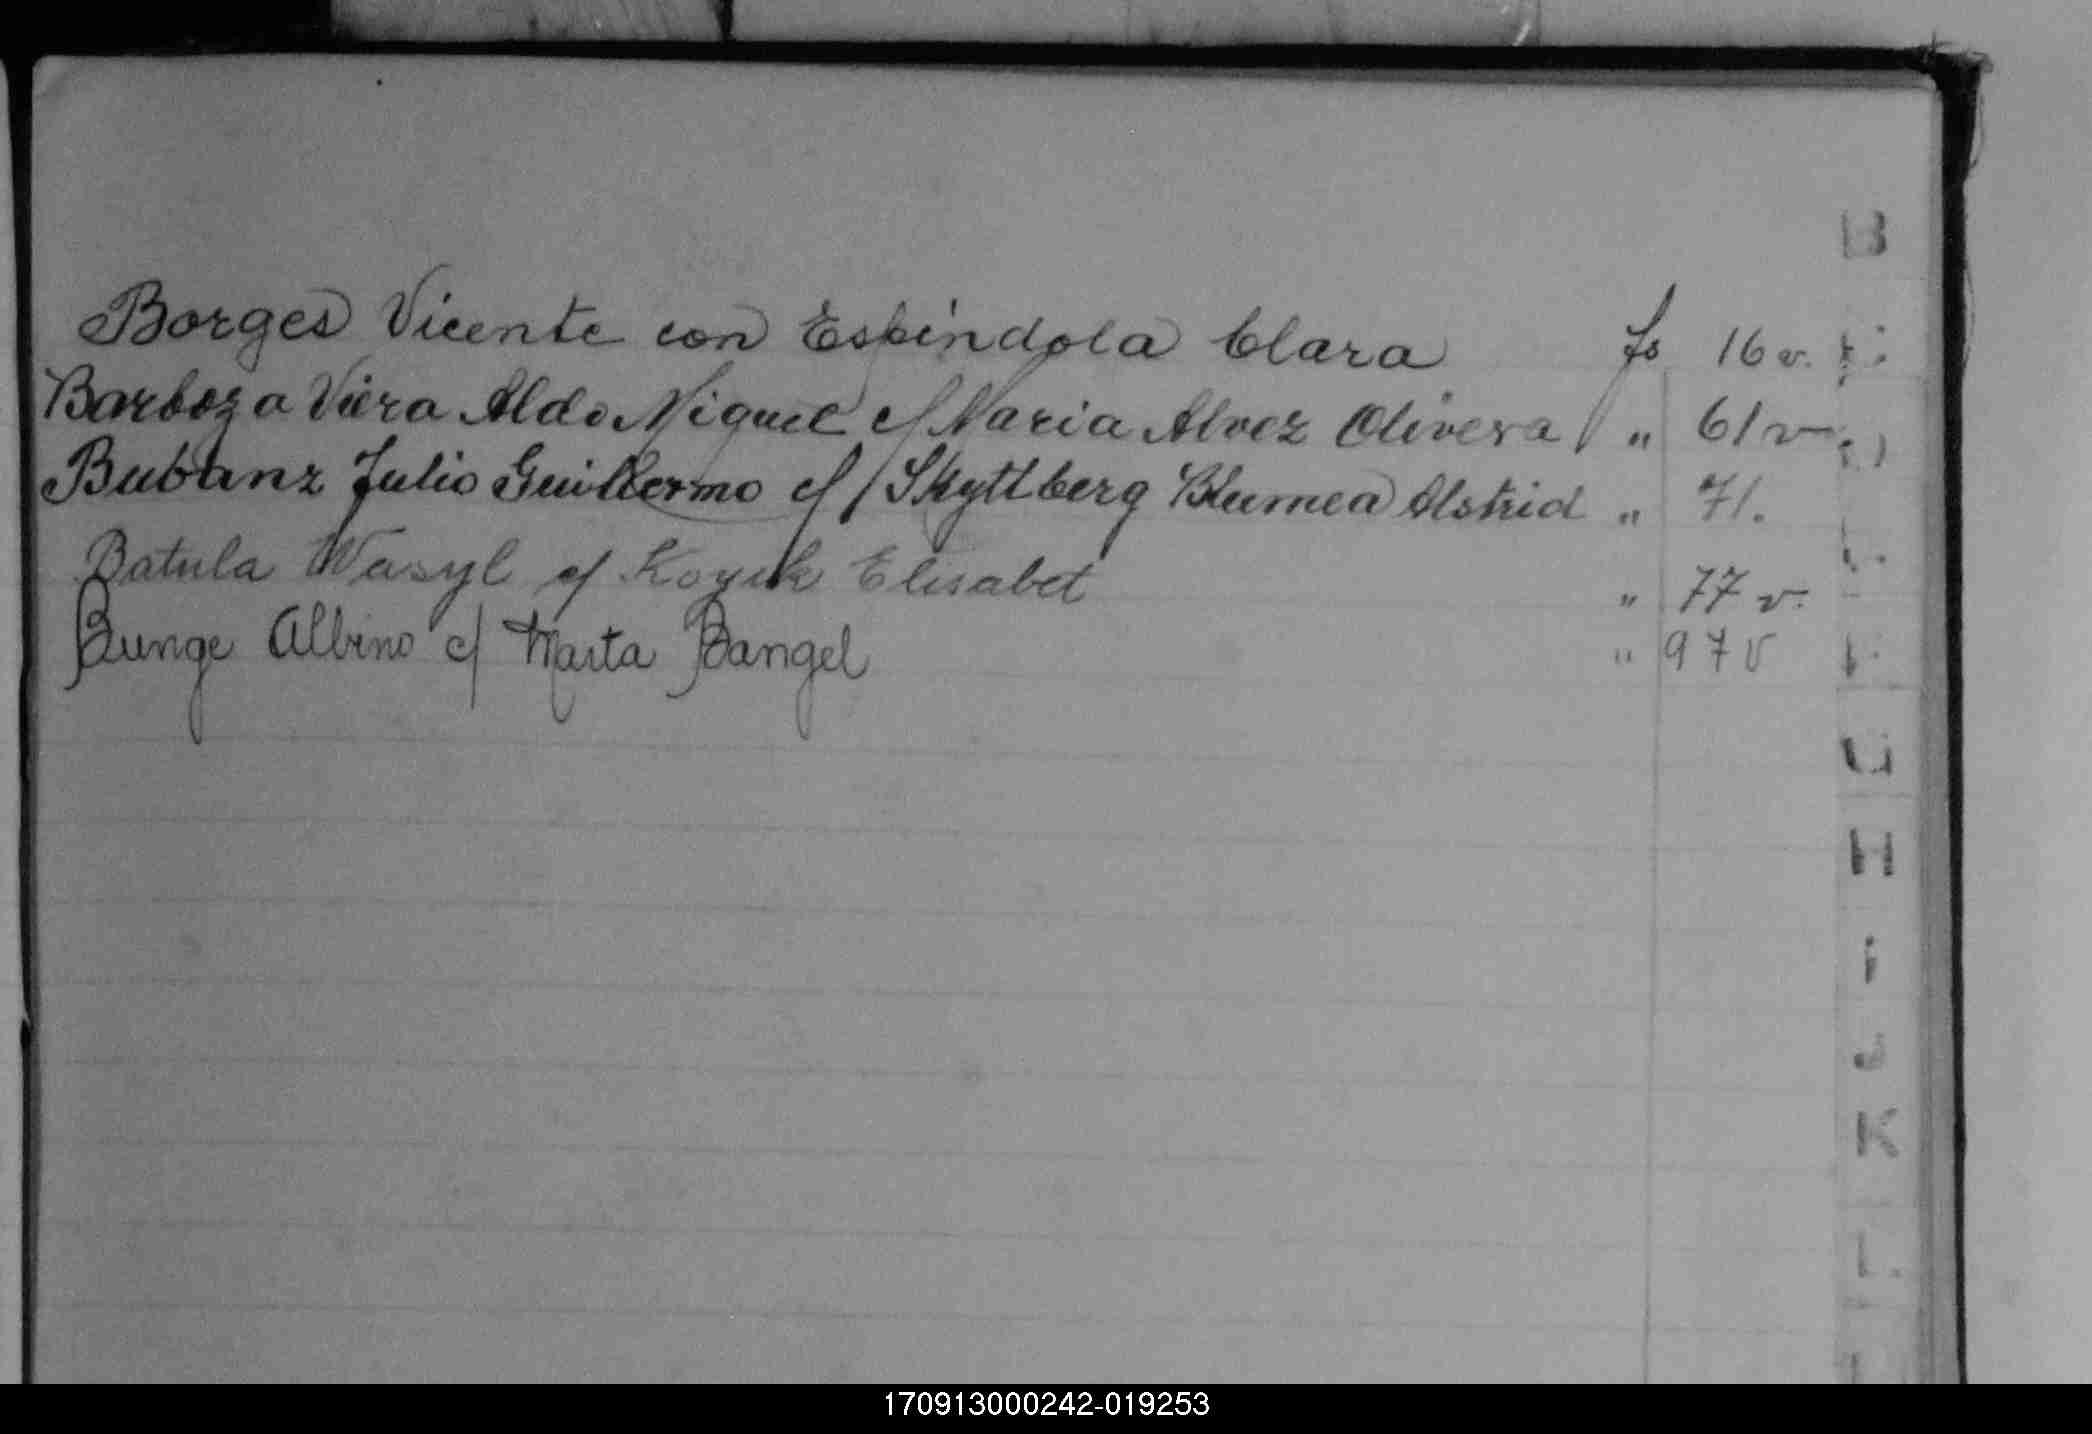 B
Borges Vicente con Espindola Clara fs 16 v.
Barboza Viera Aldo Miguel c/ Maria Alvez Olivera " 61 v
Bubanz Julio Guillermo c/ Skyttberg Blumea Alstrid " 71.
Batula Wasyl c/ Elisabet " 77 v.
Bunge Albino c/ Marta Bangel " 97 v
H
K
L
170913000242-019253